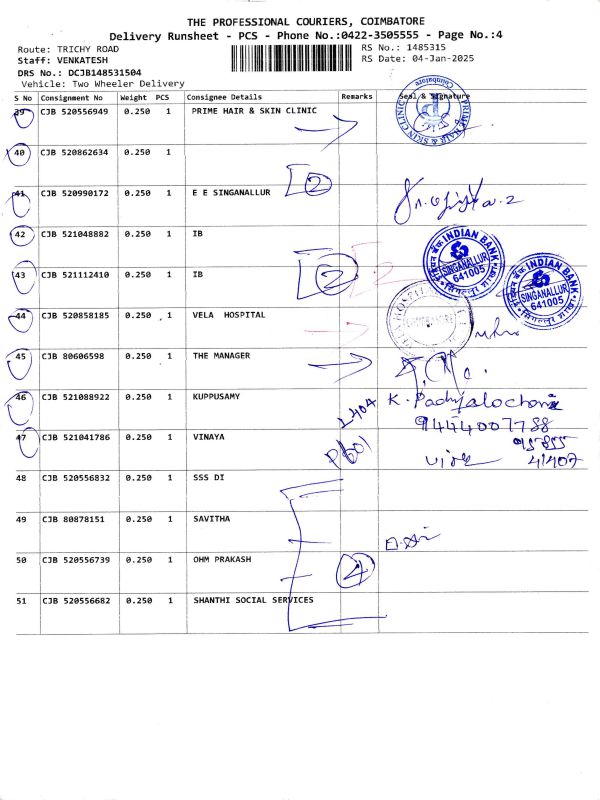 THE PROFESSIONAL COURIERS, COIMBATORE
Delivery Runsheet - PCS - Phone No.:0422-3505555 - Page No.:4
Route: TRICHY ROAD
RS No.: 1485315
Staff: VENKATESH
RS Date: 04-Jan-2025
DRS No.: DCJB148531504
Vehicle: Two Wheeler Delivery
S No Consignment No Weight PCS Consignee Details Remarks Seal & Signature
39 CJB 520556949 0.250 1 PRIME HAIR & SKIN CLINIC
PRIME HAIR & SKIN CLINIC Coimbatore
40 CJB 520862634 0.250 1
2
41 CJB 520990172 0.250 1 E E SINGANALLUR
42 CJB 521048882 0.250 1 IB
INDIAN BANK
SINGANALLUR
641005
43 CJB 521112410 0.250 1 IB
2
INDIAN BANK
SINGANALLUR
641005
44 CJB 520858185 0.250 1 VELA HOSPITAL
45 CJB 80606598 0.250 1 THE MANAGER
46 CJB 521088922 0.250 1 KUPPUSAMY
K. Padmalochani
9444007788
47 CJB 521041786 0.250 1 VINAYA
48 CJB 520556832 0.250 1 SSS DI
49 CJB 80878151 0.250 1 SAVITHA
50 CJB 520556739 0.250 1 OHM PRAKASH
4
51 CJB 520556682 0.250 1 SHANTHI SOCIAL SERVICES